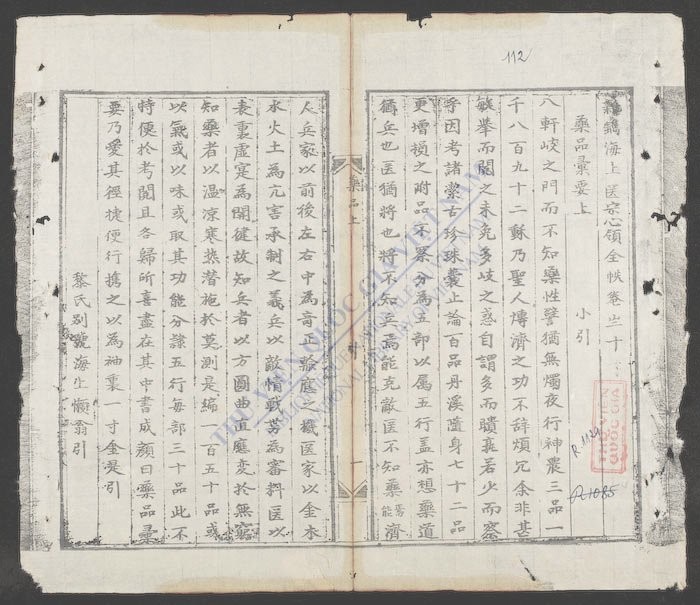 新鐫海上医宗心領全帙卷之十
藥品彙要上
小引
入軒岐之門而不知藥性譬猶無燭夜行神農三品一
千八百九十二穌乃聖人博濟之功不辞煩冗余非甚
敏挙而閱之未免多岐之惑自謂多而瞶若少而密
乎因考諸潔古珍珠囊止論百品丹溪隨身七十二品
更增損之附品不累分為五部以属五行盖亦想藥道
猶兵也医猶将也将不知兵焉能克敵医不知藥焉能濟
人兵家以前後左右中為奇正之機医家以金木
水火土為亢害承制之義兵以敵情戦势為審料医以
表裏虛寔為関鍵故知兵者以方圓曲直應変於無窮
知藥者以温凉寒热潜施於莫測是編一百五十品或
以氣或以味或取其功能分隷五行每部三十品此不
特便於考閱且各歸所喜盡在其中書成顔曰藥品彙
要乃愛其徑捷便行携之以為袖裏一寸金是引
黎氏别號海上懶翁引
藥品上
一
112
R.1124
R.1085
THƯ VIỆN QUỐC GIA VIỆT NAM
BIBLIOTHÈQUE NATIONALE DU VIETNAM
NATIONAL LIBRARY OF VIETNAM